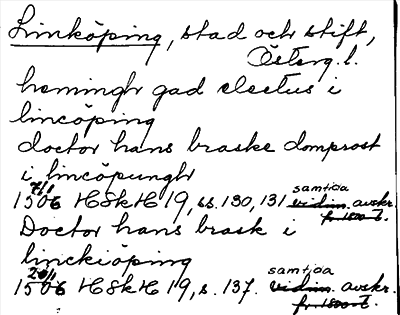 Linköping, stad och stift,
Österg. l.
hemingh gad electus i
lincöping
doctor hans braske domprost
i lincöpungh
7/1 samtida
1506 HSkH 19, ss. 130, 131 vidim. avskr.
fr. 1500-t.
Doctor hans brask i
linckiöping
20/1 samtida
1506 HSkH 19, s. 137. vidim. avskr.
fr. 1500-t.